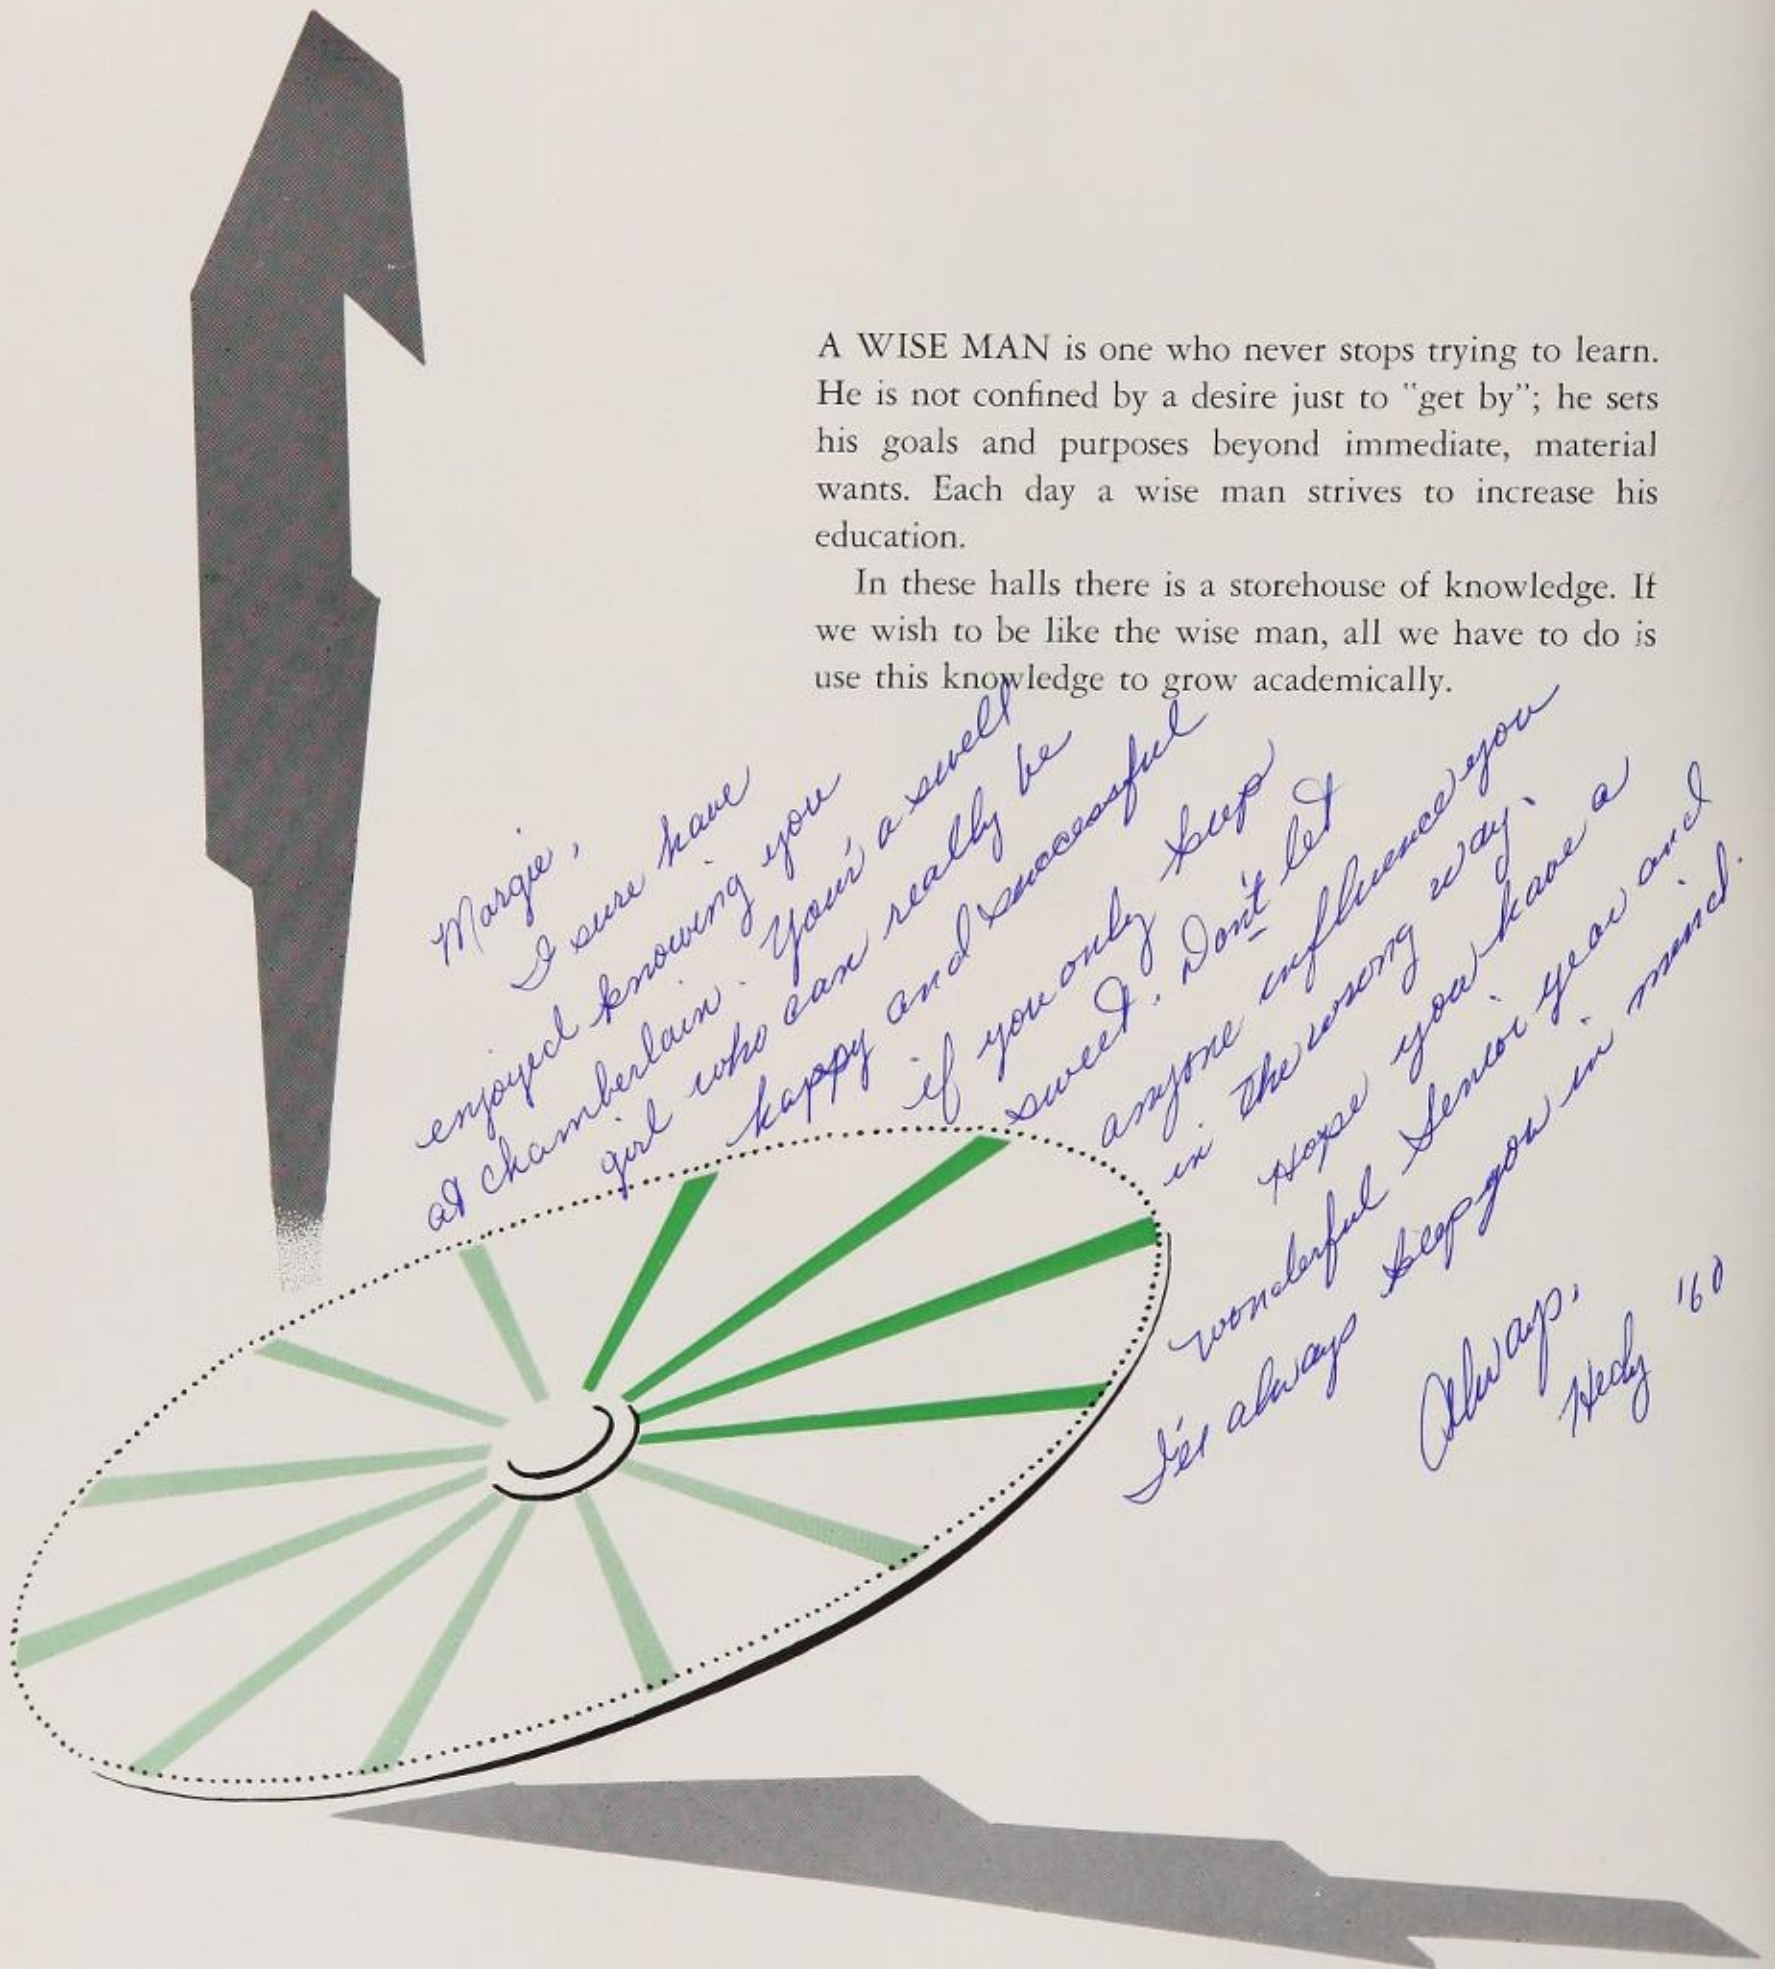 A WISE MAN is one who never stops trying to learn.
He is not confined by a desire just to "get by"; he sets
his goals and purposes beyond immediate, material
wants. Each day a wise man strives to increase his
education.
In these halls there is a storehouse of knowledge. If
we wish to be like the wise man, all we have to do is
use this knowledge to grow academically.
Margie,
I sure have
enjoyed knowing you
at Chamberlain. Your'e a swell
girl who can really be
happy and successful
if you only keep
sweet. Don't let
anyone influence you
in the wrong way.
Hope you have a
wonderful Senior year and
I'll always keep you in mind.
Always,
Hedy '60